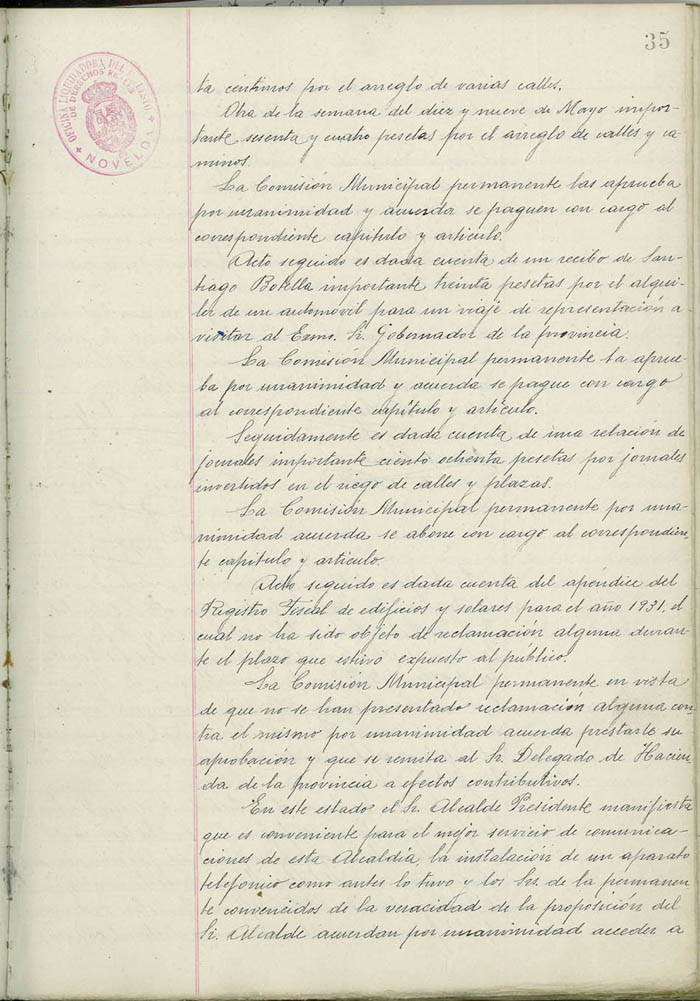 35
OFICINA LIQUIDADORA DEL
DE DERECHOS REALES
NOVELDA
ta céntimos por el arreglo de varias calles.
Otra de la semana del diez y nueve de Mayo impor-
tante sesenta y cuatro pesetas por el arreglo de calles y ca-
minos.
La Comisión Municipal permanente las aprueba
por unanimidad y acuerda se paguen con cargo al
correspondiente capitulo y articulo.
Acto seguido es dada cuenta de un recibo de San-
tiago Botella importante treinta pesetas por el alqui-
ler de un automóvil para un viaje de representación a
visitar al Exmo. Sr. Gobernador de la provincia.
La Comisión Municipal permanente la aprue-
ba por unanimidad y acuerda se pague con cargo
al correspondiente capítulo y artículo.
Seguidamente es dada cuenta de una relación de
jornales importante ciento ochenta pesetas por jornales
invertidos en el riego de calles y plazas.
La Comisión Municipal permanente por una-
nimidad acuerda se abone con cargo al correspondien
te capitulo y articulo.
Acto seguido es dada cuenta del apéndice del
Registro Fiscal de edificios y solares para el año 1931, el
cual no ha sido objeto de reclamación alguna duran-
te el plazo que estuvo expuesto al público.
La Comisión Municipal permanente en vista
de que no se han presentado reclamación alguna con
tra el mismo por unanimidad acuerda prestarle su
aprobación y que se remita al Sr. Delegado de Hacien
da de la provincia a efectos contributivos.
En este estado el Sr. Alcalde Presidente manifiesta
que es conveniente para el mejor servicio de comunica-
ciones de esta Alcaldía, la instalación de un aparato
telefonico como antes lo tuvo y los Srs. de la permanen
te convencidos de la veracidad de la proposición del
Sr. Alcalde acuerdan por unanimidad acceder a